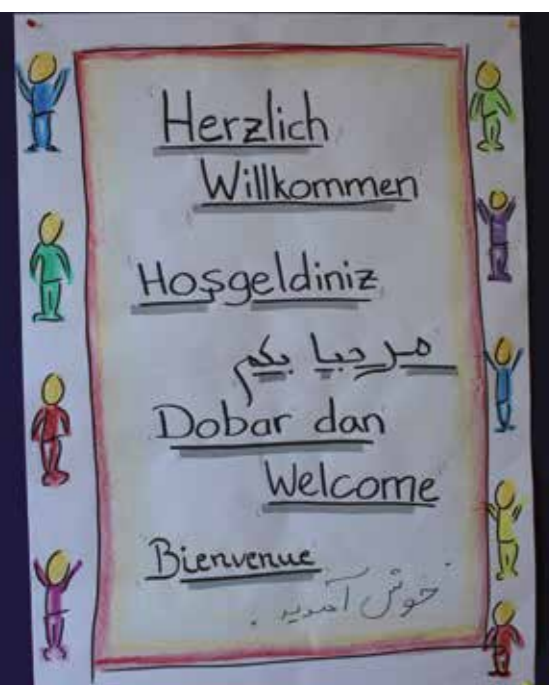 Herzlich
Willkommen
Hoşgeldiniz
مرحبا بكم
Dobar dan
Welcome
Bienvenue
خوش آمدید .